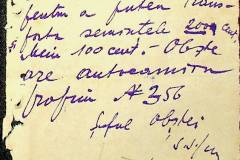 pentru a putea trans-
porta semințele 2000 cent.
100 cent. - Obște
are autocamion
propriu № 256
Șeful Obștei